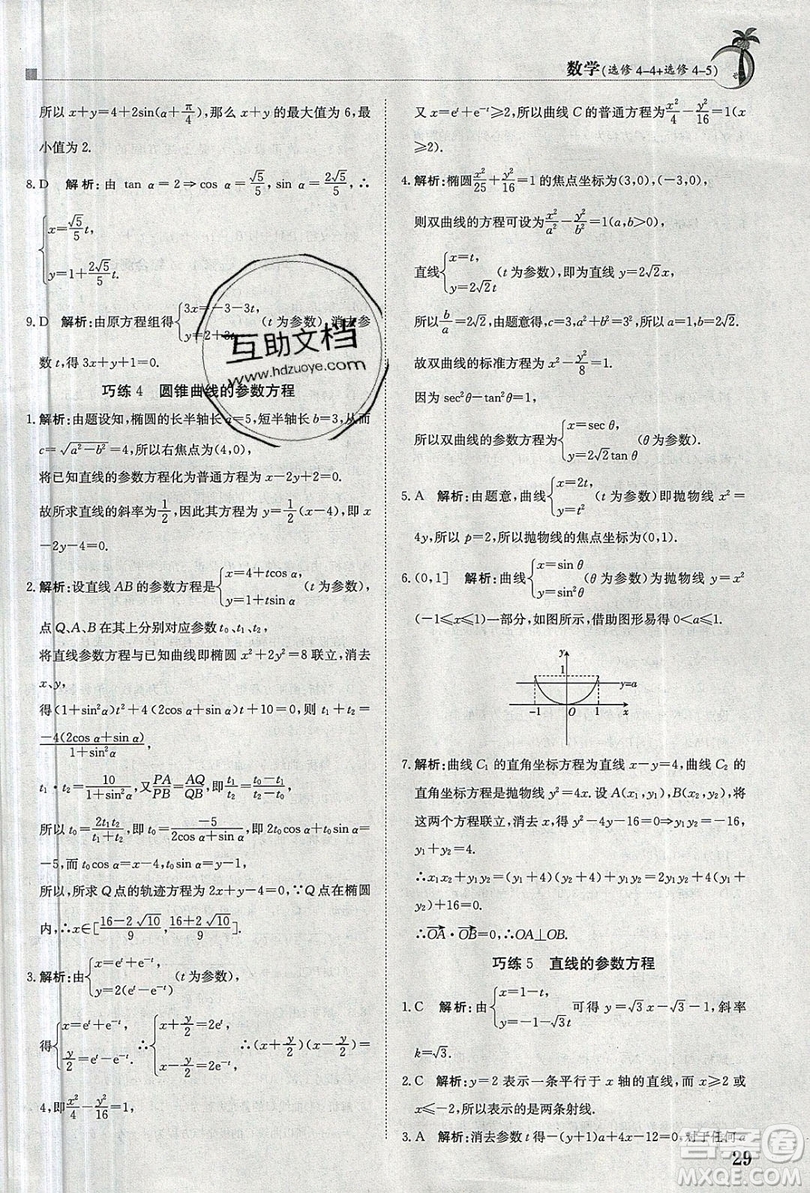 数学(选修 4-4+选修 4-5)
所以 x+y=4+2sin(α+π/4),那么 x+y 的最大值为 6,最
小值为 2.
8. D 解析:由 tan α=2⇒cos α=√5/5,sin α=2√5/5,∴
{x=√5/5 t,
y=1+2√5/5 t.
9. D 解析:由原方程组得{3x=-3-3t, y=2+3t (t 为参数),消去参
数 t,得 3x+y=-1.
巧练 4 圆锥曲线的参数方程
1. 解析:由题设知,椭圆的长半轴长 a=5,短半轴长 b=3,从而
c=√(a²-b²)=4,所以右焦点为(4,0),
将已知直线的参数方程化为普通方程 x-2y+2=0.
故所求直线的斜率为1/2,因此其方程为 y=1/2(x-4),即 x
-2y-4=0.
2. 解析:设直线 AB 的参数方程是{x=4+tcos α, y=1+tsin α (t 为参数),
点 Q、A、B 在其上分别对应参数 t₀、t₁、t₂,
将直线参数方程与已知曲线即椭圆 x²+2y²=8 联立,消去
x、y,
得(1+sin²α)t²+4(2cos α+sin α)t+10=0,则 t₁+t₂=
-4(2cos α+sin α)/(1+sin²α),
t₁·t₂=10/(1+sin²α),又PA/PB=AQ/QB,即t₁/t₂=(t₀-t₁)/(t₂-t₀),
所以 t₀=2t₁t₂/(t₁+t₂),即 t₀=-5/(2cos α+sin α),即 2t₀cos α+t₀sin α=
-5,而 t₀cos α=x-4,t₀sin α=y-1,
所以,所求 Q 点的轨迹方程为 2x+y-4=0,∵Q 点在椭圆
内,∴x∈[(16-2√10)/9,(16+2√10)/9].
3. 解析:由{x=eᵗ+e⁻ᵗ, y=2(eᵗ-e⁻ᵗ) (t 为参数),
得{x=eᵗ+e⁻ᵗ, y/2=eᵗ-e⁻ᵗ ∴{x+y/2=2eᵗ, x-y/2=2e⁻ᵗ ∴(x+y/2)(x-y/2)=
4,即x²/4-y²/16=1,
又 x=eᵗ+e⁻ᵗ≥2,所以曲线 C 的普通方程为x²/4-y²/16=1(x
≥2).
4. 解析:椭圆x²/25+y²/16=1 的焦点坐标为(3,0),(-3,0),
则双曲线的方程可设为x²/a²-y²/b²=1(a,b>0),
直线{x=t, y=2√2t (t 为参数),即为直线 y=2√2x,
所以b/a=2√2,由题意得,c=3,则 a=1,b=2√2.
故双曲线的标准方程为x²-y²/8=1.
又因为 sec²θ-tan²θ=1,
所以双曲线的参数方程为{x=sec θ, y=2√2tan θ (θ 为参数).
5. A 解析:由题意,曲线{x=2t, y=t² (t 为参数)即抛物线 x²=
4y,所以 p=2,所以抛物线的焦点坐标为(0,1).
6. (0,1] 解析:曲线{x=sin θ, y=sin²θ (θ 为参数)为抛物线 y=x²
(-1≤x≤1)一部分,如图所示,借助图形易得 0<a≤1.
y
1
y=a
-1 O 1 x
7. 解析:曲线 C₁ 的直角坐标方程为直线 x-y=4,曲线 C₂ 的
直角坐标方程为抛物线 y²=4x.设 A(x₁,y₁),B(x₂,y₂),
将这两个方程联立,消去 x 得 y²-4y-16=0⇒y₁y₂=-16,
y₁+y₂=4.
∴x₁x₂+y₁y₂=(y₁+4)(y₂+4)+y₁y₂=2y₁y₂+4(y₁+
y₂)+16=0.
∴OA·OB=0,∴OA⊥OB.
巧练 5 直线的参数方程
1. C 解析:由{x=1-t, y=√3-√3t 可得 y-√3=√3x-√3,斜率
k=√3.
2. C 解析:y=2 表示一条平行于 x 轴的直线,而 x≥2 或
x≤-2,所以表示的是两条射线.
3. A 解析:消去参数 t 得-a(y+1)+4x-4=0,对于任何 a
29
互助文档
www.hdzuoye.com
答案圈
MXQE.COM